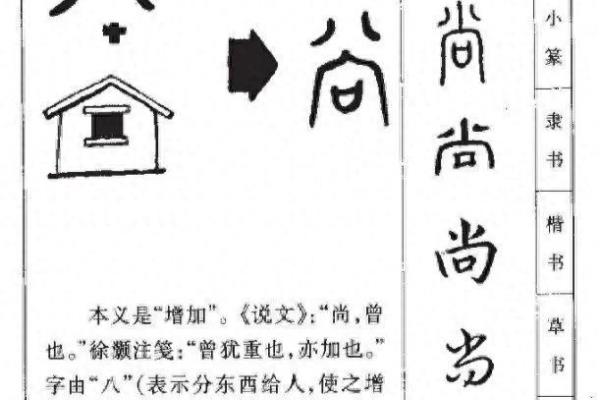 尚
小篆
尚
隶书
尚
楷书
尚
草书
尚
本义是“增加”。《说文》:“尚,曾
也。”徐灏注笺:“曾犹重也,亦加也。”
字由“八”(表示分东西给人,使之增